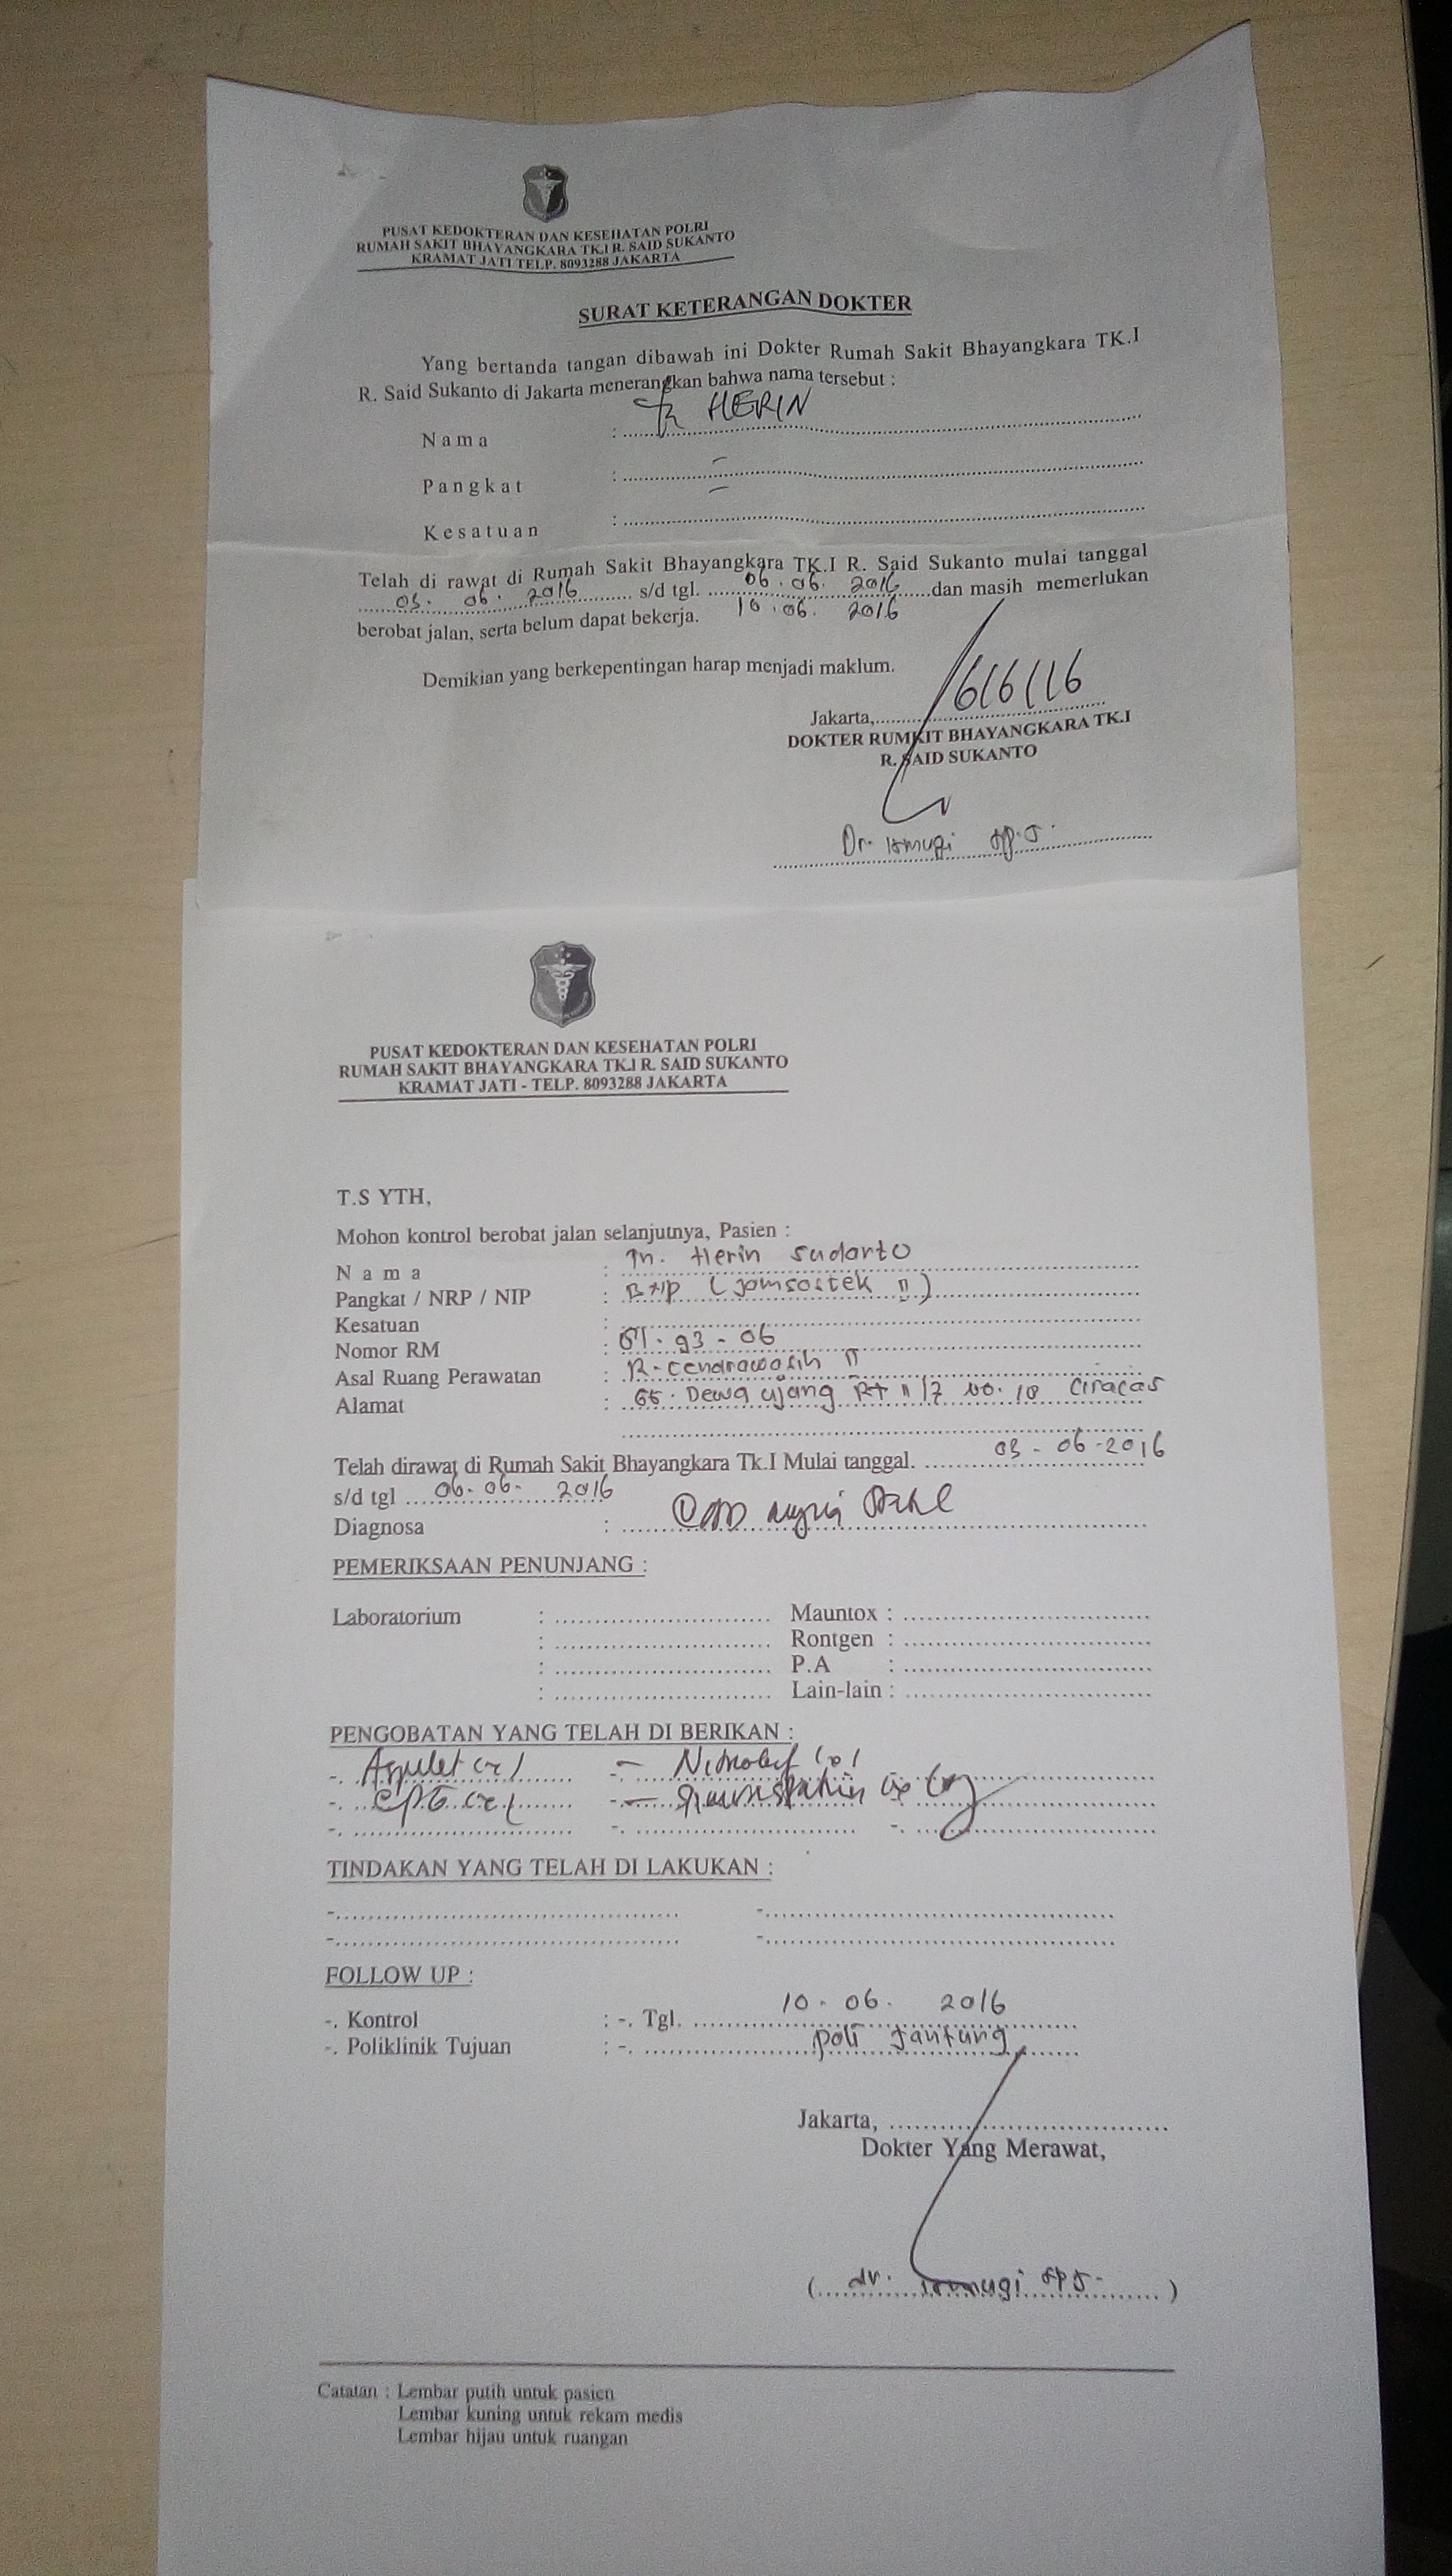 PUSAT KEDOKTERAN DAN KESEHATAN POLRI
RUMAH SAKIT BHAYANGKARA TK.I R. SAID SUKANTO
KRAMAT JATI TELP. 8093288 JAKARTA
SURAT KETERANGAN DOKTER
Yang bertanda tangan dibawah ini Dokter Rumah Sakit Bhayangkara TK.I
R. Said Sukanto di Jakarta menerangkan bahwa nama tersebut :
Nama : HERIN
Pangkat : -
Kesatuan : -
Telah di rawat di Rumah Sakit Bhayangkara TK.I R. Said Sukanto mulai tanggal
03. 06. 2016 s/d tgl. 06. 06. 2016 dan masih memerlukan
berobat jalan, serta belum dapat bekerja. 10.06. 2016
Demikian yang berkepentingan harap menjadi maklum.
Jakarta, 6/6/16
DOKTER RUMKIT BHAYANGKARA TK.I
R. SAID SUKANTO
Dr.
PUSAT KEDOKTERAN DAN KESEHATAN POLRI
RUMAH SAKIT BHAYANGKARA TK.I R. SAID SUKANTO
KRAMAT JATI - TELP. 8093288 JAKARTA
T.S YTH,
Mohon kontrol berobat jalan selanjutnya, Pasien :
Nama : Tn. Herin Sudarto
Pangkat / NRP / NIP : (Jamsostek II)
Kesatuan :
Nomor RM : 93 - 06
Asal Ruang Perawatan : R. Cendrawasih II
Alamat : Dewa ujang Rt 11/7 No. 10 Ciracas
Telah dirawat di Rumah Sakit Bhayangkara Tk.I Mulai tanggal. 03 - 06 - 2016
s/d tgl 06. 06. 2016
Diagnosa :
PEMERIKSAAN PENUNJANG :
Laboratorium : Mauntox :
: Rontgen :
: P.A :
: Lain-lain :
PENGOBATAN YANG TELAH DI BERIKAN :
-. -.
-. CPG -.
-. -. -.
TINDAKAN YANG TELAH DI LAKUKAN :
-. -.
-. -.
FOLLOW UP :
-. Kontrol : -. Tgl. 10 - 06. 2016
-. Poliklinik Tujuan : -. Poli Jantung
Jakarta,
Dokter Yang Merawat,
( dr. )
Catatan : Lembar putih untuk pasien
Lembar kuning untuk rekam medis
Lembar hijau untuk ruangan